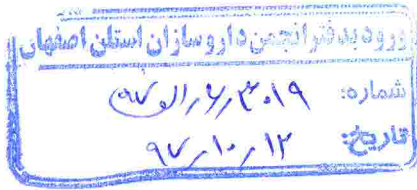 ورود به دفتر انجمن داروسازان استان اصفهان
شماره: ۳۰۱۹
تاریخ: ۹۷/۱۰/۱۲